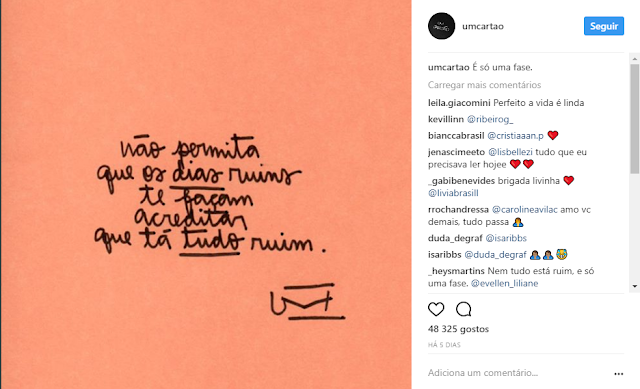 não permita
que os dias ruins
te façam
acreditar
que tá tudo ruim.
umcartao
Seguir
umcartao É só uma fase.
Carregar mais comentários
leila.giacomini Perfeito a vida é linda
kevillinn @ribeirog_
bianccabrasil @cristiaaan.p ❤
jenascimeeto @lisbellezi tudo que eu
precisava ler hojee ❤❤
_gabibenevides brigada livinha ❤
@liviabrasill
rrochandressa @carolineavilac amo vc
demais, tudo passa
duda_degraf @isaribbs
isaribbs @duda_degraf
_heysmartins Nem tudo está ruim, e só
uma fase. @evellen_liliane
48 325 gostos
HÁ 5 DIAS
Adiciona um comentário...